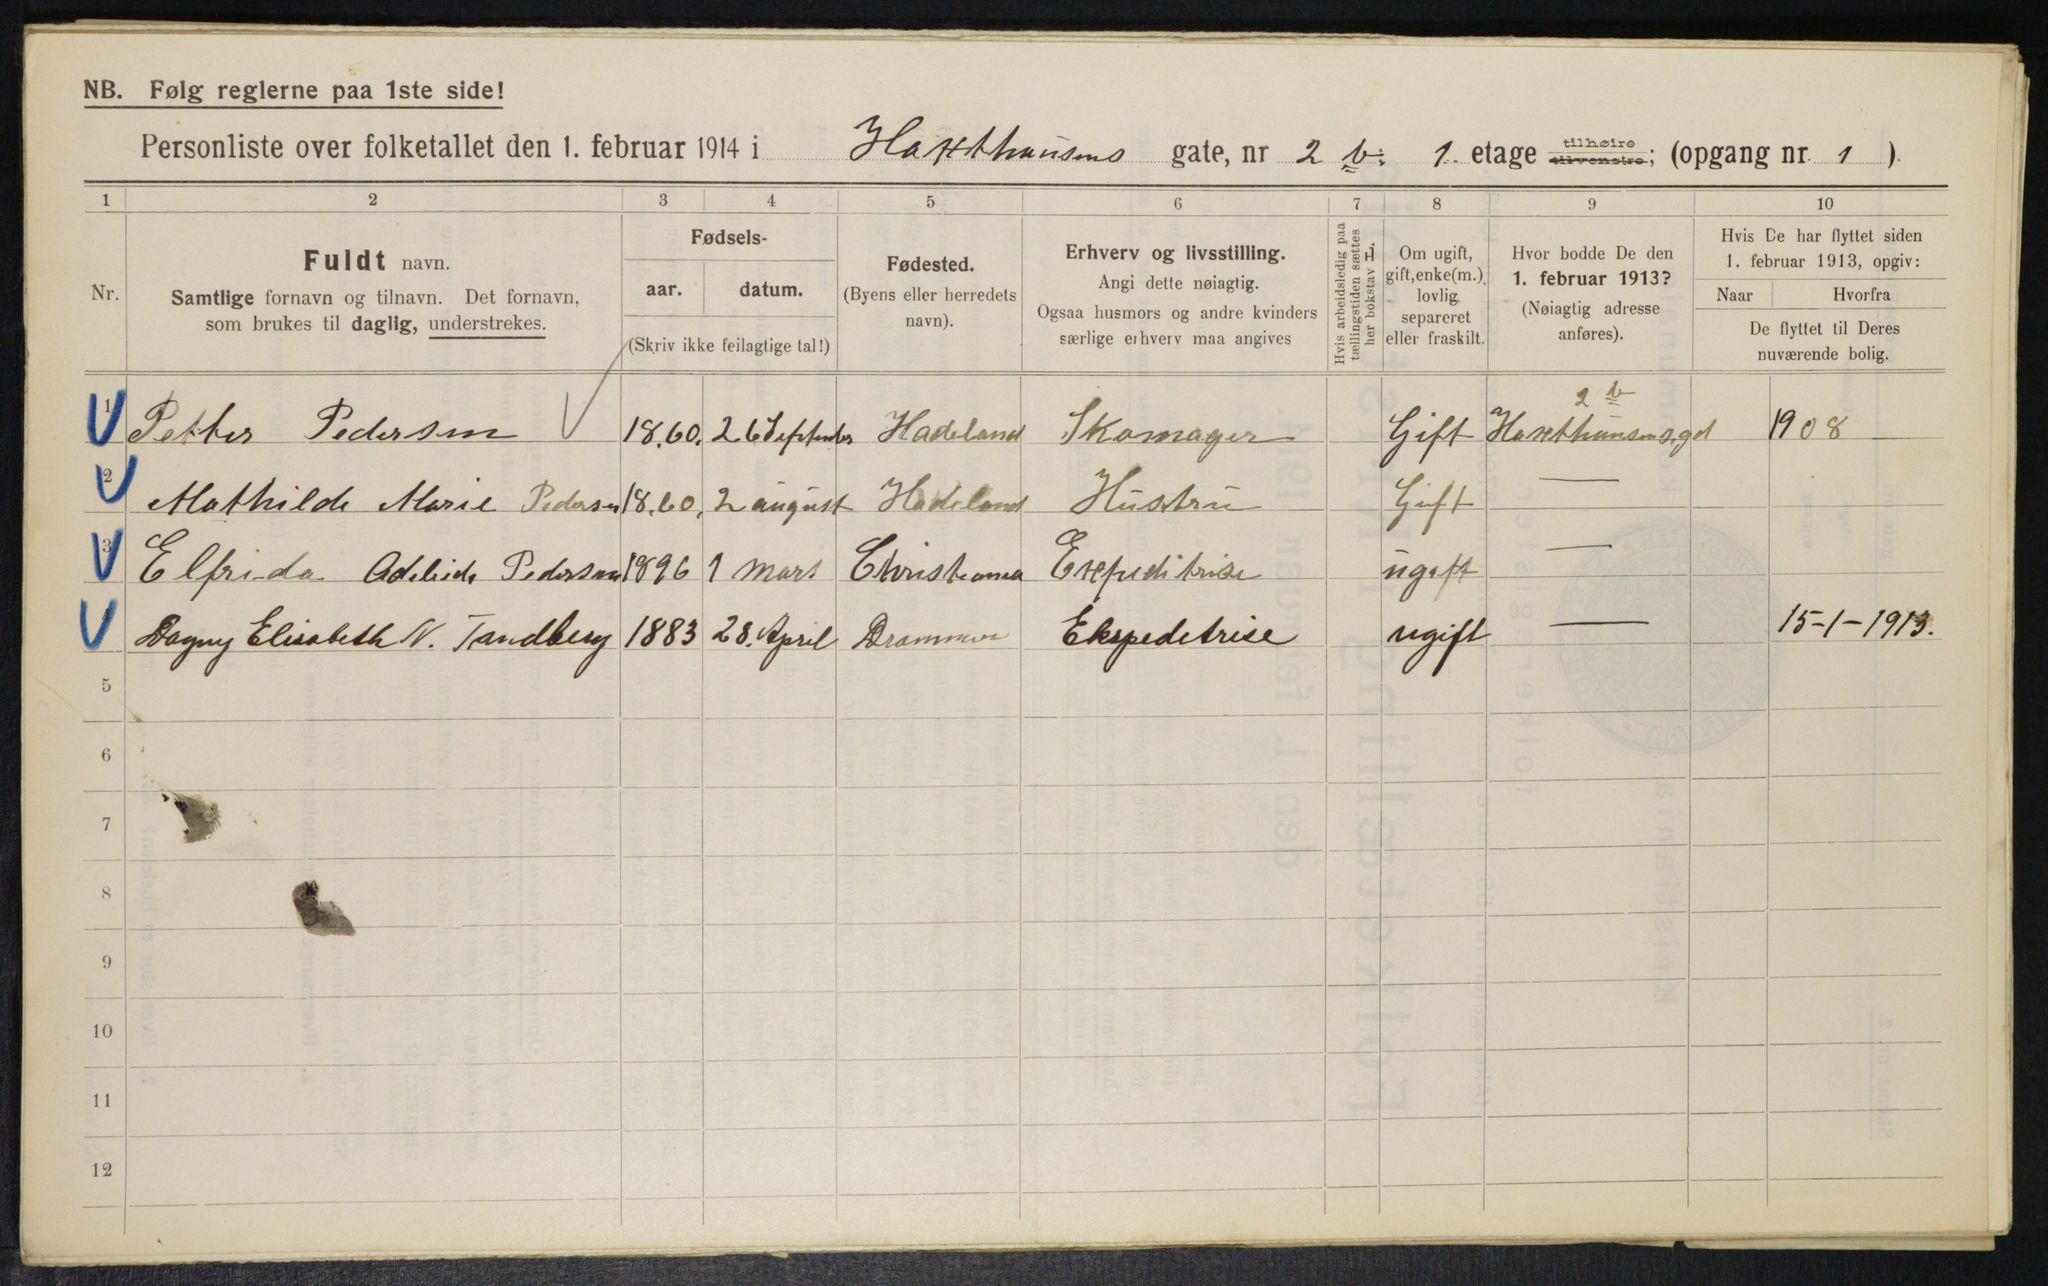 NB. Følg reglerne paa 1ste side!
Personliste over folketallet den 1. februar 1914 i Haxthausens gate, nr 2 b. 1. etage tilhøire tilvenstre; (opgang nr. 1 ).
1 2 3 4 5 6 7 8 9 10
Nr.
Fuldt navn.
Samtlige fornavn og tilnavn. Det fornavn,
som brukes til daglig, understrekes.
Fødsels-
aar. datum.
(Skriv ikke feilagtige tal!)
Fødested.
(Byens eller herredets
navn).
Erhverv og livsstilling.
Angi dette nøiagtig.
Ogsaa husmors og andre kvinders
særlige erhverv maa angives
Hvis arbeidsledig paa
tællingstiden sættes
her bokstav L.
Om ugift,
gift, enke(m.),
lovlig
separeret
eller fraskilt.
Hvor bodde De den
1. februar 1913?
(Nøiagtig adresse
anføres).
Hvis De har flyttet siden
1. februar 1913, opgiv:
Naar Hvorfra
De flyttet til Deres
nuværende bolig.
2 b
1 Petter Pedersen 18.60. 26 September Hadeland Skomager Gift Haxthausensgd 1908
2 Mathilde Marie Pedersen 18.60. 2 august Hadeland Hustru Gift —
3 Elfrida Adeleide Pedersen 1896 1 mars Christiania Expeditrise ugift —
Dagny Elisabeth N. Tandberg 1883 28. April Drammen Ekspeditrise ugift — 15-1-1913.
5
6
7
8
9
10
11
12